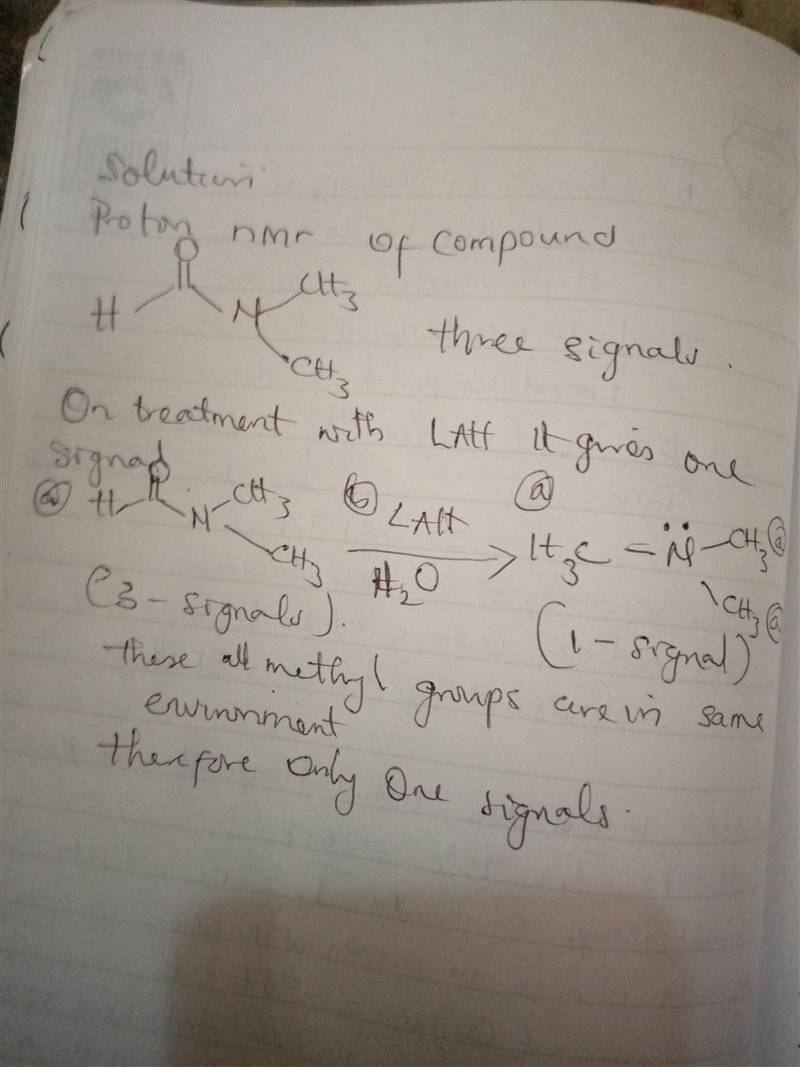 Solution
Proton nmr of compound
O
H N CH3
CH3
three signals.
On treatment with LAH it gives one
signal
O
ⓐ H N CH3
CH3
ⓑ LAH
H2O
ⓐ
H3C = N̈ - CH3 ⓐ
\CH3 ⓐ
(3-signals).
(1-signal)
these all methyl groups are in same
therefore only One signals.